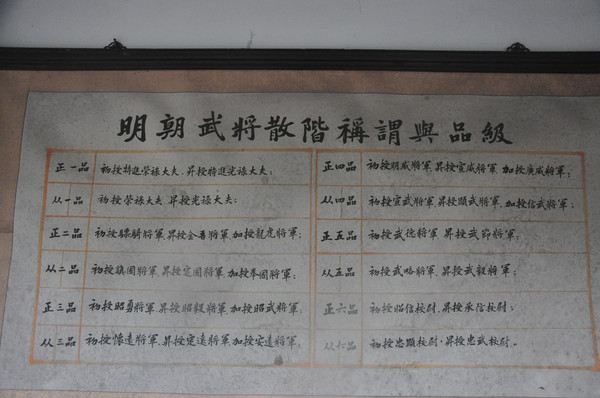 明朝武將散階稱謂與品級
正一品 初授特進榮祿大夫、昇授特進光祿大夫；
从一品 初授榮祿大夫 昇授光祿大夫；
正二品 初授驃騎將軍、昇授金吾將軍、加授龍虎將軍；
从二品 初授鎮國將軍、昇授定國將軍、加授奉國將軍；
正三品 初授昭勇將軍、昇授昭毅將軍、加授昭武將軍；
从三品 初授懷遠將軍、昇授定遠將軍、加授安遠將軍；
正四品 初授明威將軍、昇授宣威將軍、加授廣威將軍；
从四品 初授宣武將軍、昇授顯武將軍、加授信武將軍；
正五品 初授武德將軍、昇授武節將軍；
从五品 初授武略將軍、昇授武毅將軍；
正六品 初授昭信校尉、昇授承信校尉；
从六品 初授忠顯校尉，昇授忠武校尉。